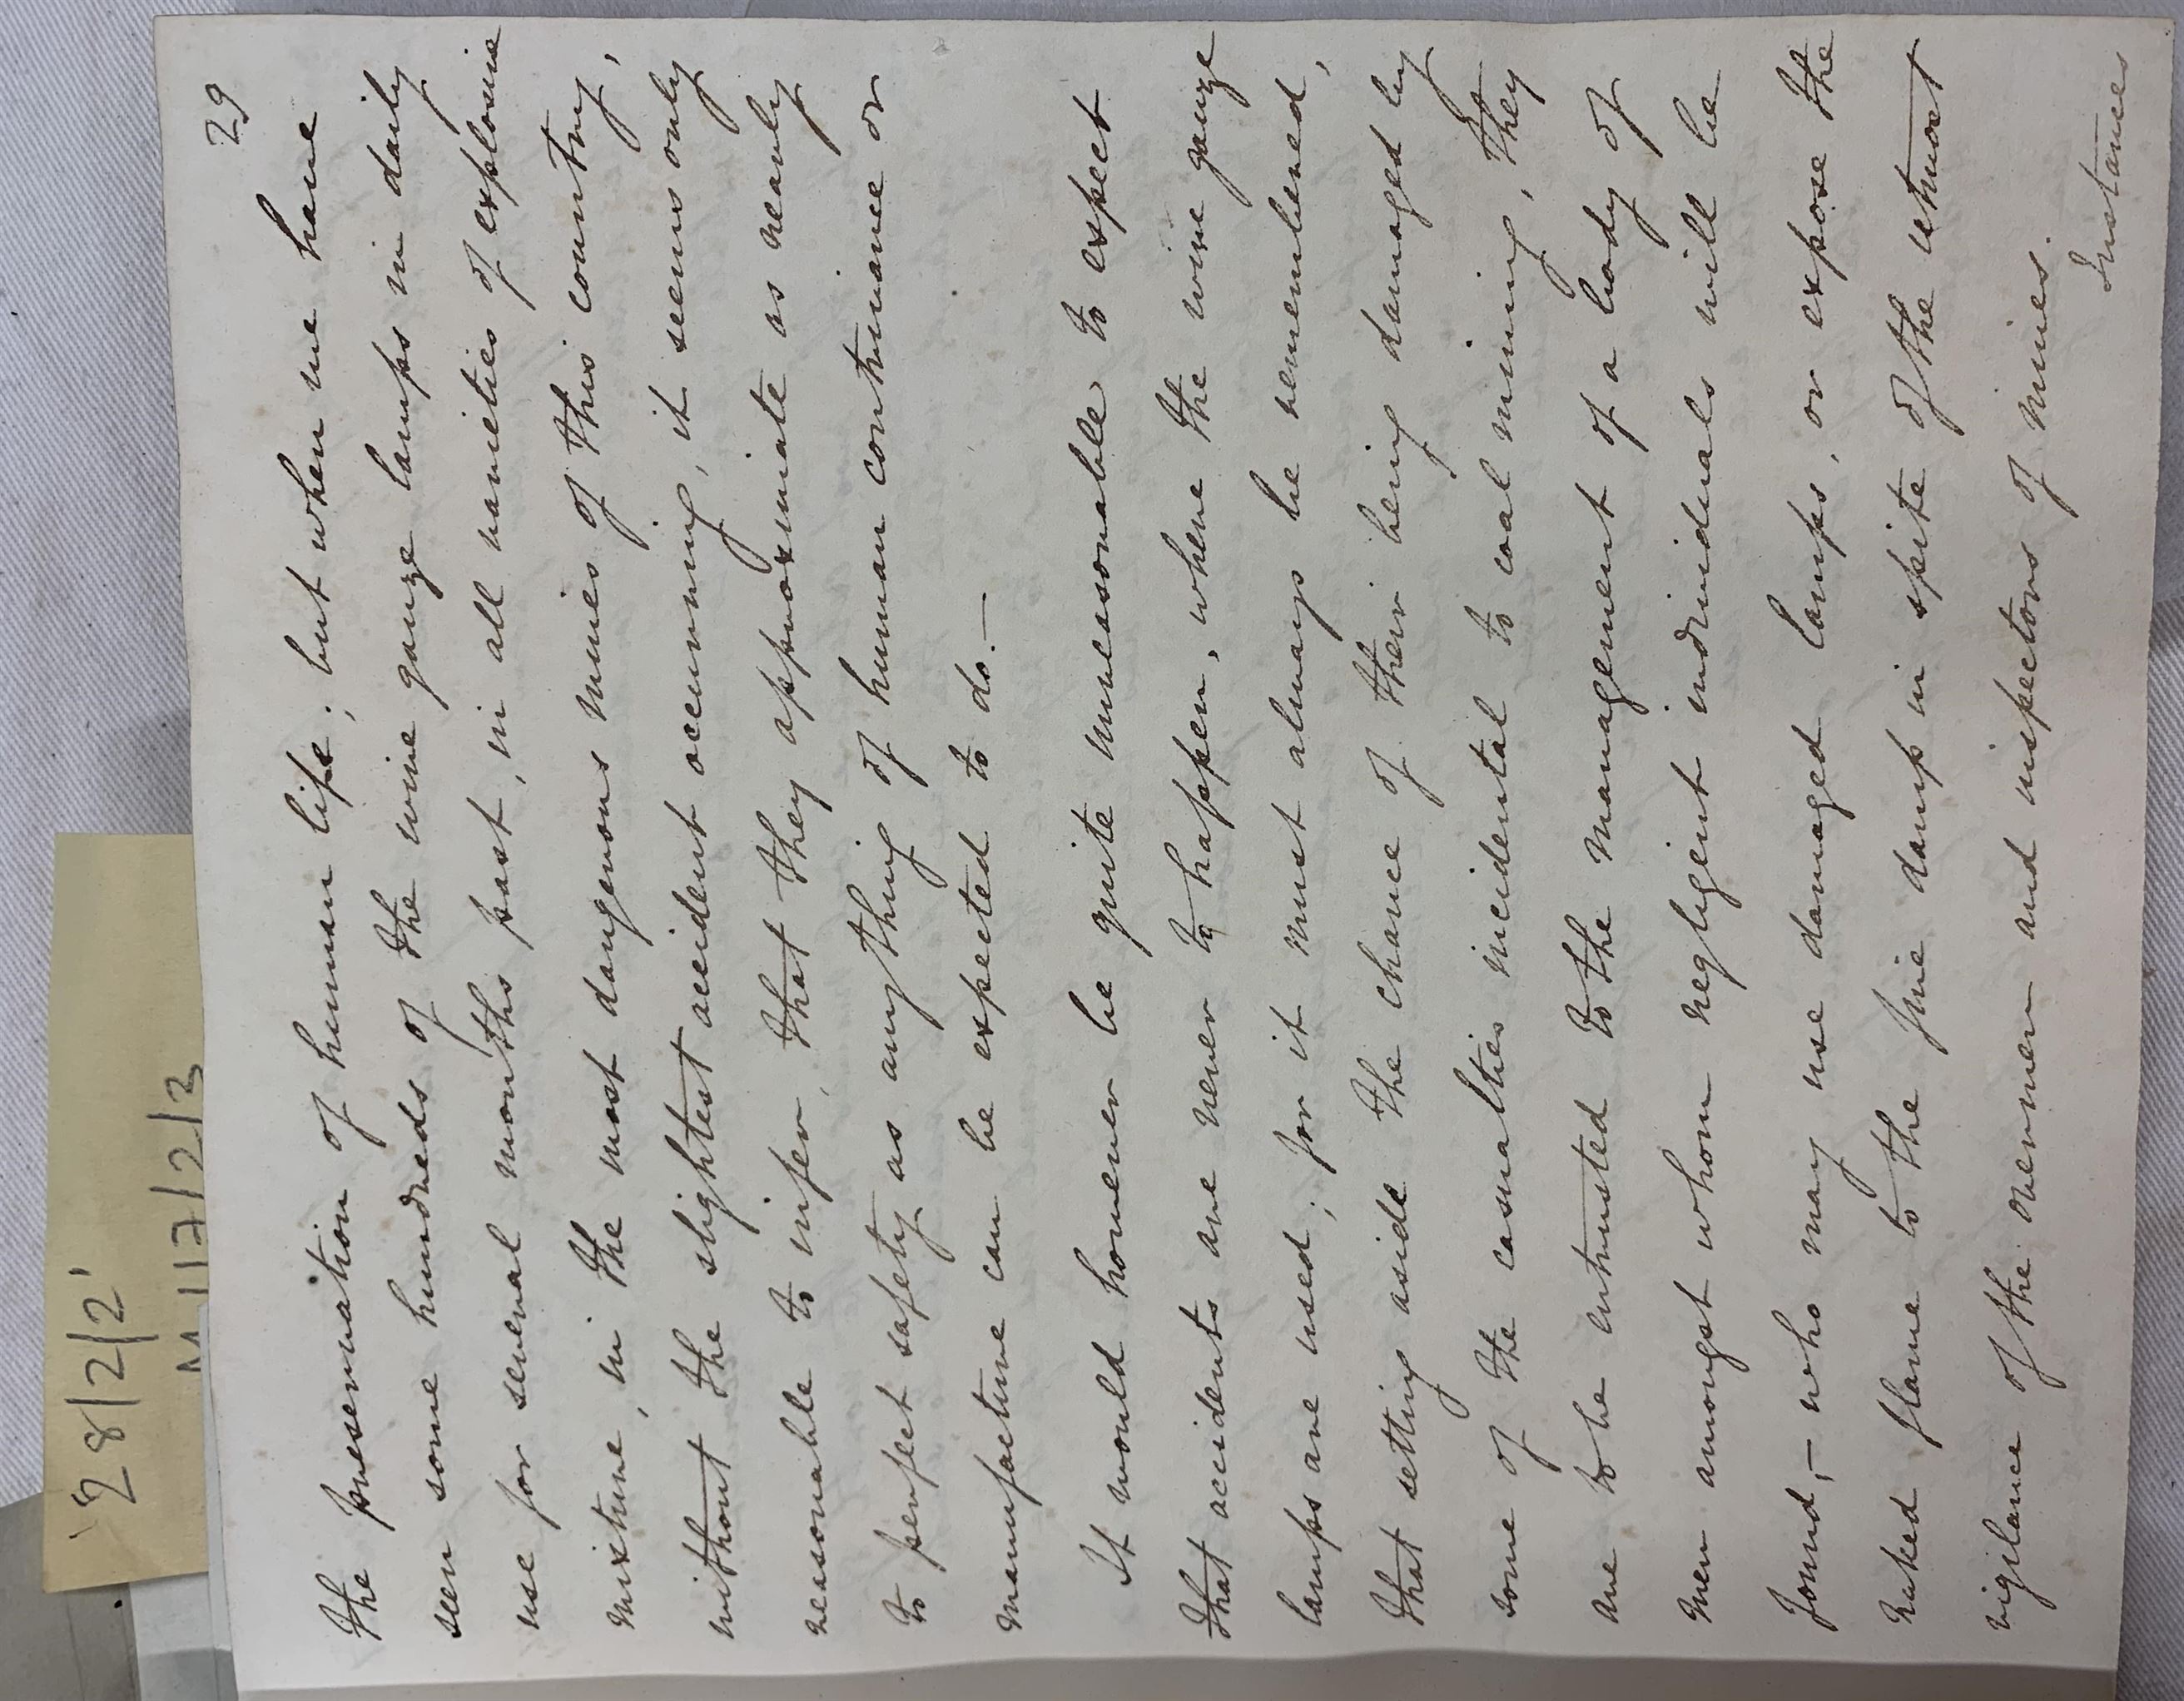 28/2/2'
M117/2/3
29
the preservation of human life; but when we have
seen some hundreds of the wire gauze lamps in daily
use for several months past, in all varieties of explosive
mixture, in the most dangerous mines of this country,
without the slightest accident occurring, it seems only
reasonable to infer, that they approximate as nearly
to perfect safety as anything of human contrivance or
manufacture can be expected to do.—
It would however be quite unreasonable to expect
that accidents are never to happen, where the wire gauze
lamps are used; for it must always be remembered,
that setting aside the chance of their being damaged by
some of the casualties incidental to coal mining, they
are to be entrusted to the management of a body of
men amongst whom negligent individuals will be
found,— who may use damaged lamps, or expose the
naked flame to the fire damp in spite of the utmost
vigilance of the overmen and inspectors of mines.
Instances